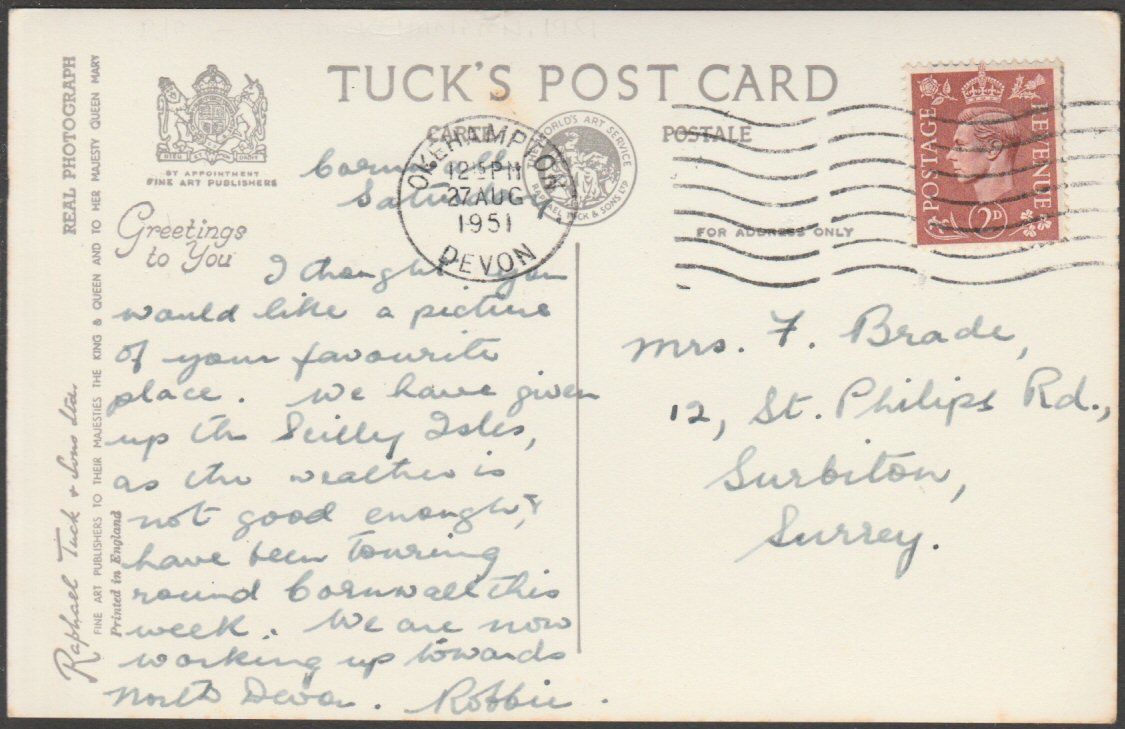 TUCK'S POST CARD
CARTE POSTALE
BY APPOINTMENT
FINE ART PUBLISHERS
THE WORLD'S ART SERVICE
RAPHAEL TUCK & SONS LTD
OKEHAMPTON
12 PM
27 AUG
1951
DEVON
POSTAGE REVENUE
2D
FOR ADDRESS ONLY
REAL PHOTOGRAPH
Greetings
to You
Raphael Tuck & Sons Ltd.
FINE ART PUBLISHERS TO THEIR MAJESTIES THE KING & QUEEN AND TO HER MAJESTY QUEEN MARY
Printed in England
Cornwall
Saturday.
I thought you
would like a picture
of your favourite
place. We have given
up the Scilly Isles,
as the weather is
not good enough, &
have been touring
round Cornwall this
week. We are now
working up towards
North Devon. Robbie.
Mrs. F. Brade,
12, St. Philips Rd.,
Surbiton,
Surrey.